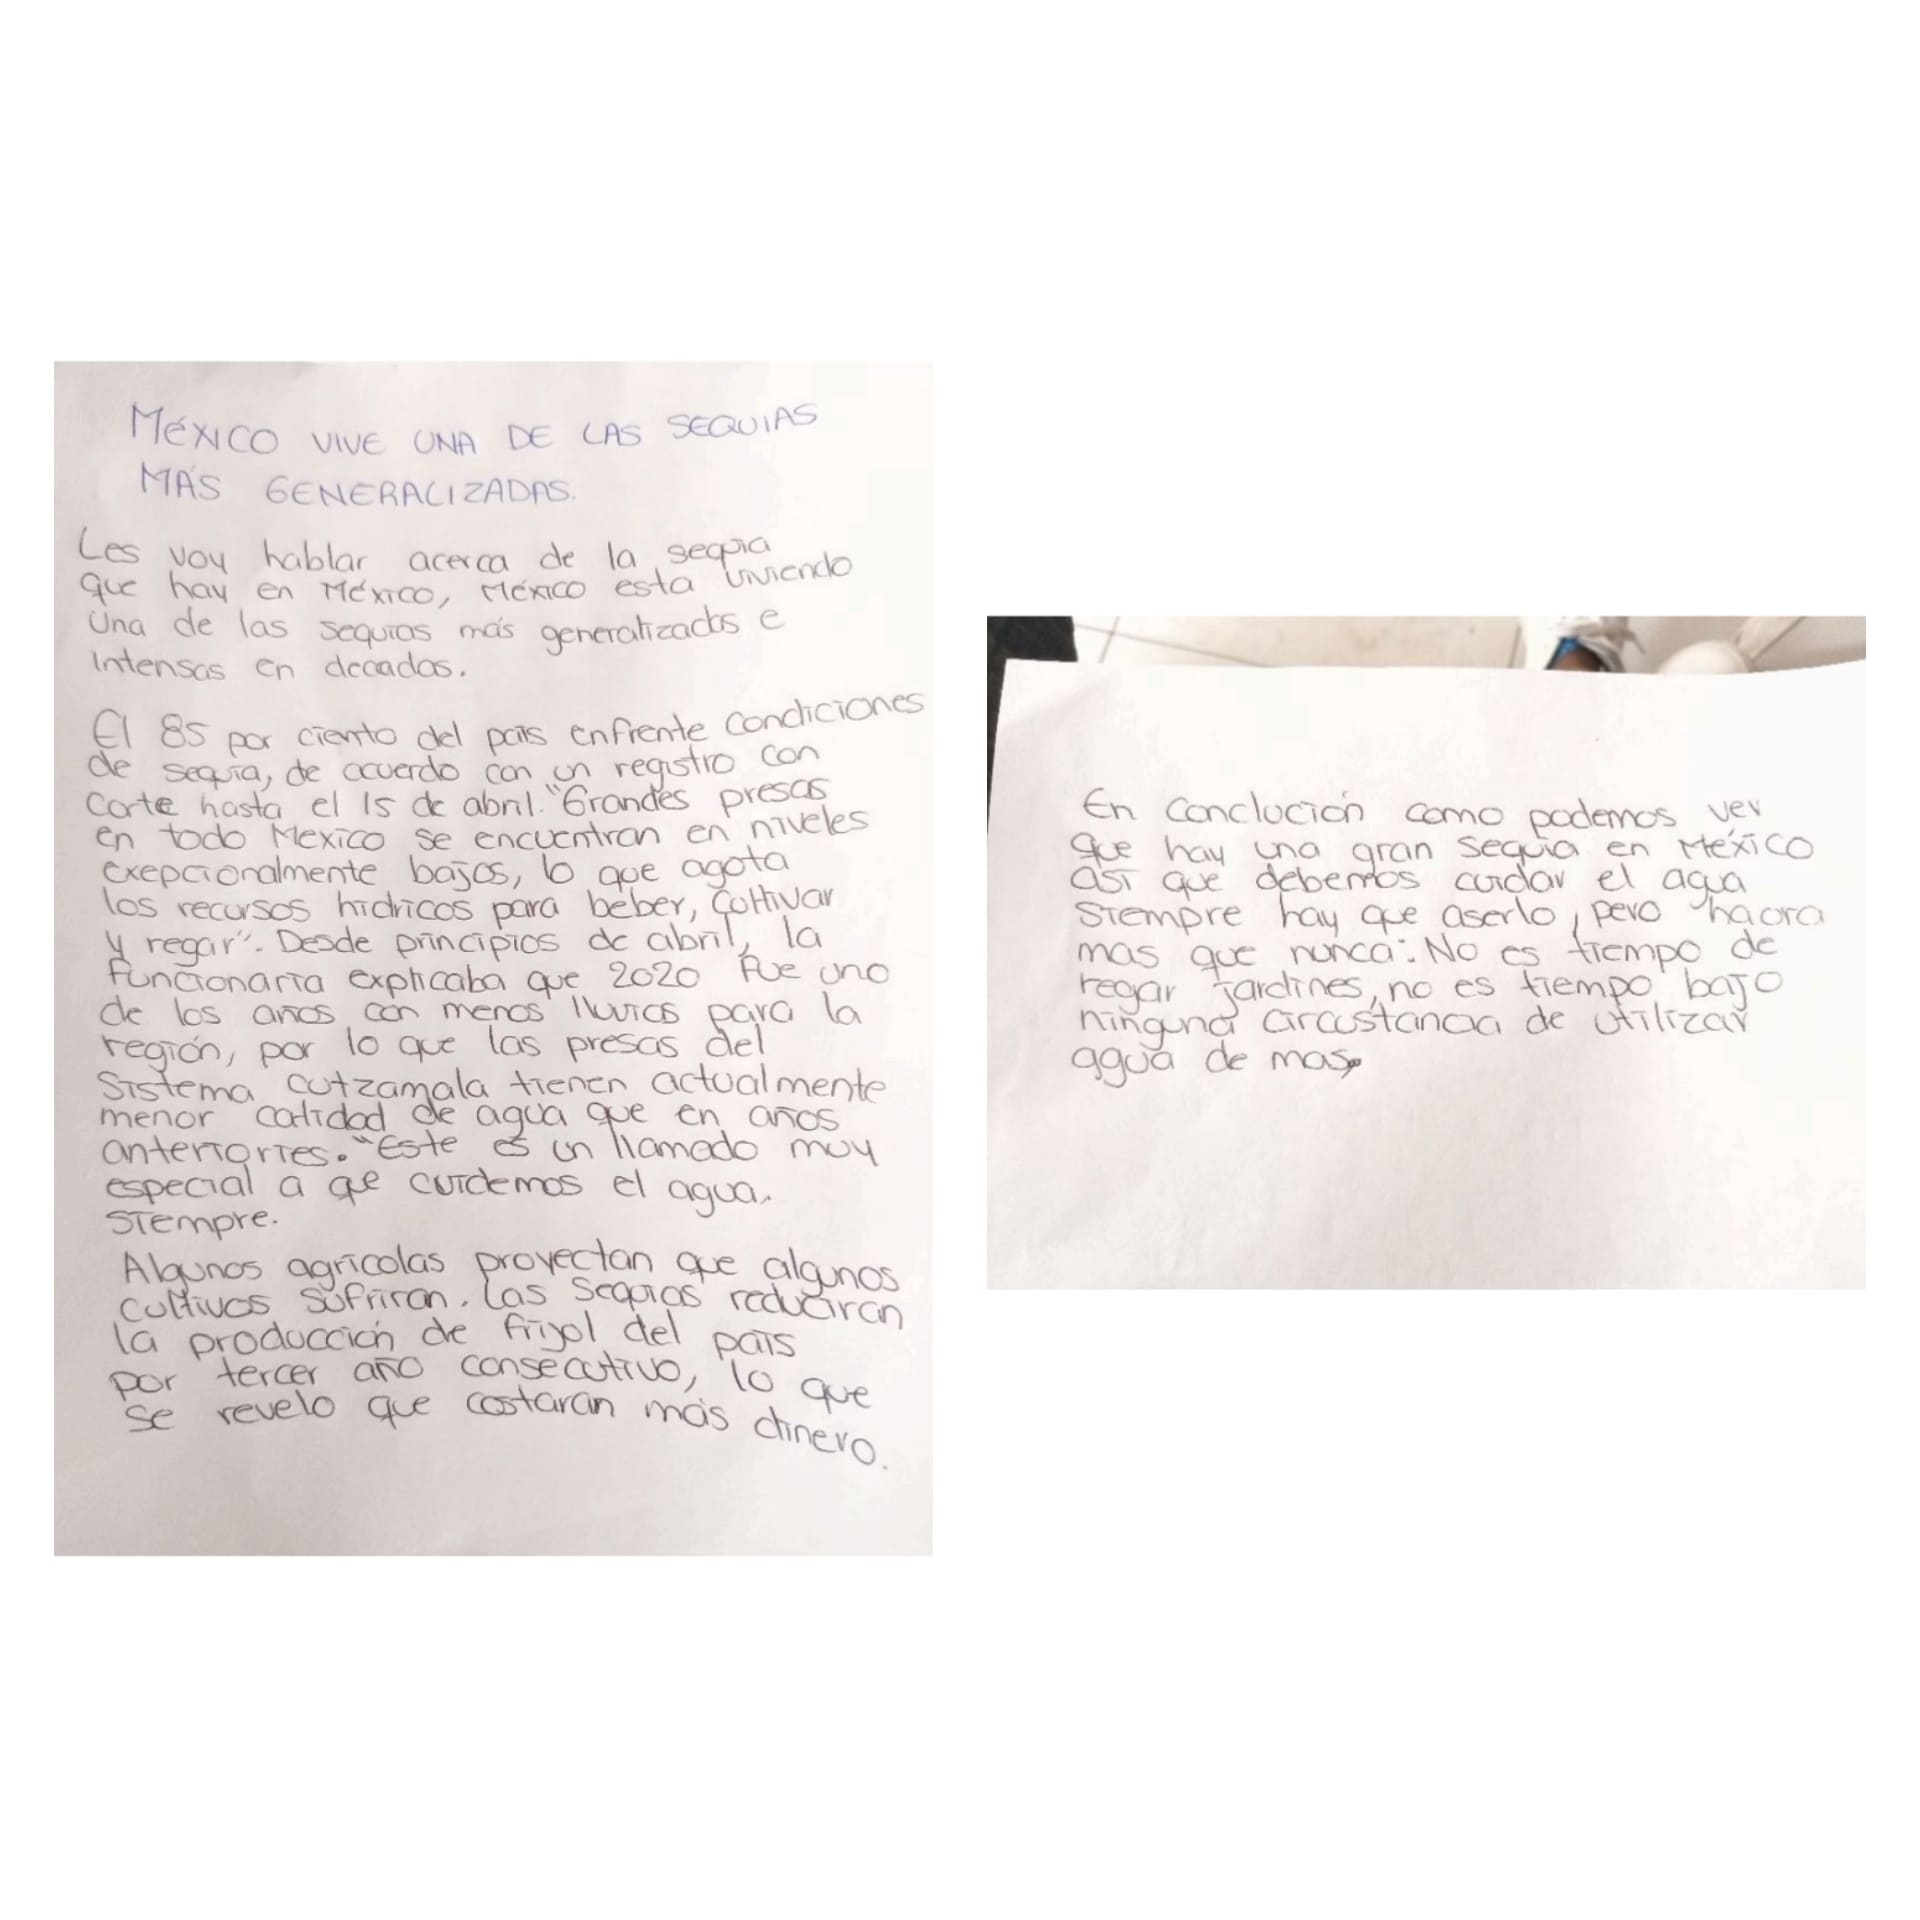 MÉXICO VIVE UNA DE LAS SEQUIAS
MÁS GENERALIZADAS.
Les voy hablar acerca de la sequia
que hay en México, México esta viviendo
una de las sequias más generalizadas e
intensas en decadas.
El 85 por ciento del país enfrente condiciones
de sequía, de acuerdo con un registro con
corte hasta el 15 de abril. "Grandes presas
en todo Mexico se encuentran en niveles
exepcionalmente bajos, lo que agota
los recursos hídricos para beber, cultivar
y regar". Desde principios de abril, la
funcionaria explicaba que 2020 fue uno
de los años con menos lluvias para la
región, por lo que las presas del
sistema cutzamala tienen actualmente
menor catidad de agua que en años
anteriories. "Este es un llamado muy
especial a que cuidemos el agua.
siempre.
Algunos agricolas proyectan que algunos
cultivos sufriran. Las Sequias reduciran
la producción de frijol del país
por tercer año consecutivo, lo que
se revelo que costaran más dinero.
En Conclución como podemos ver
que hay una gran sequia en México
así que debemos cuidar el agua
siempre hay que aserlo, pero haora
mas que nunca: No es tiempo de
regar jardines, no es tiempo bajo
ninguna circustancia de utilizar
agua de mas,